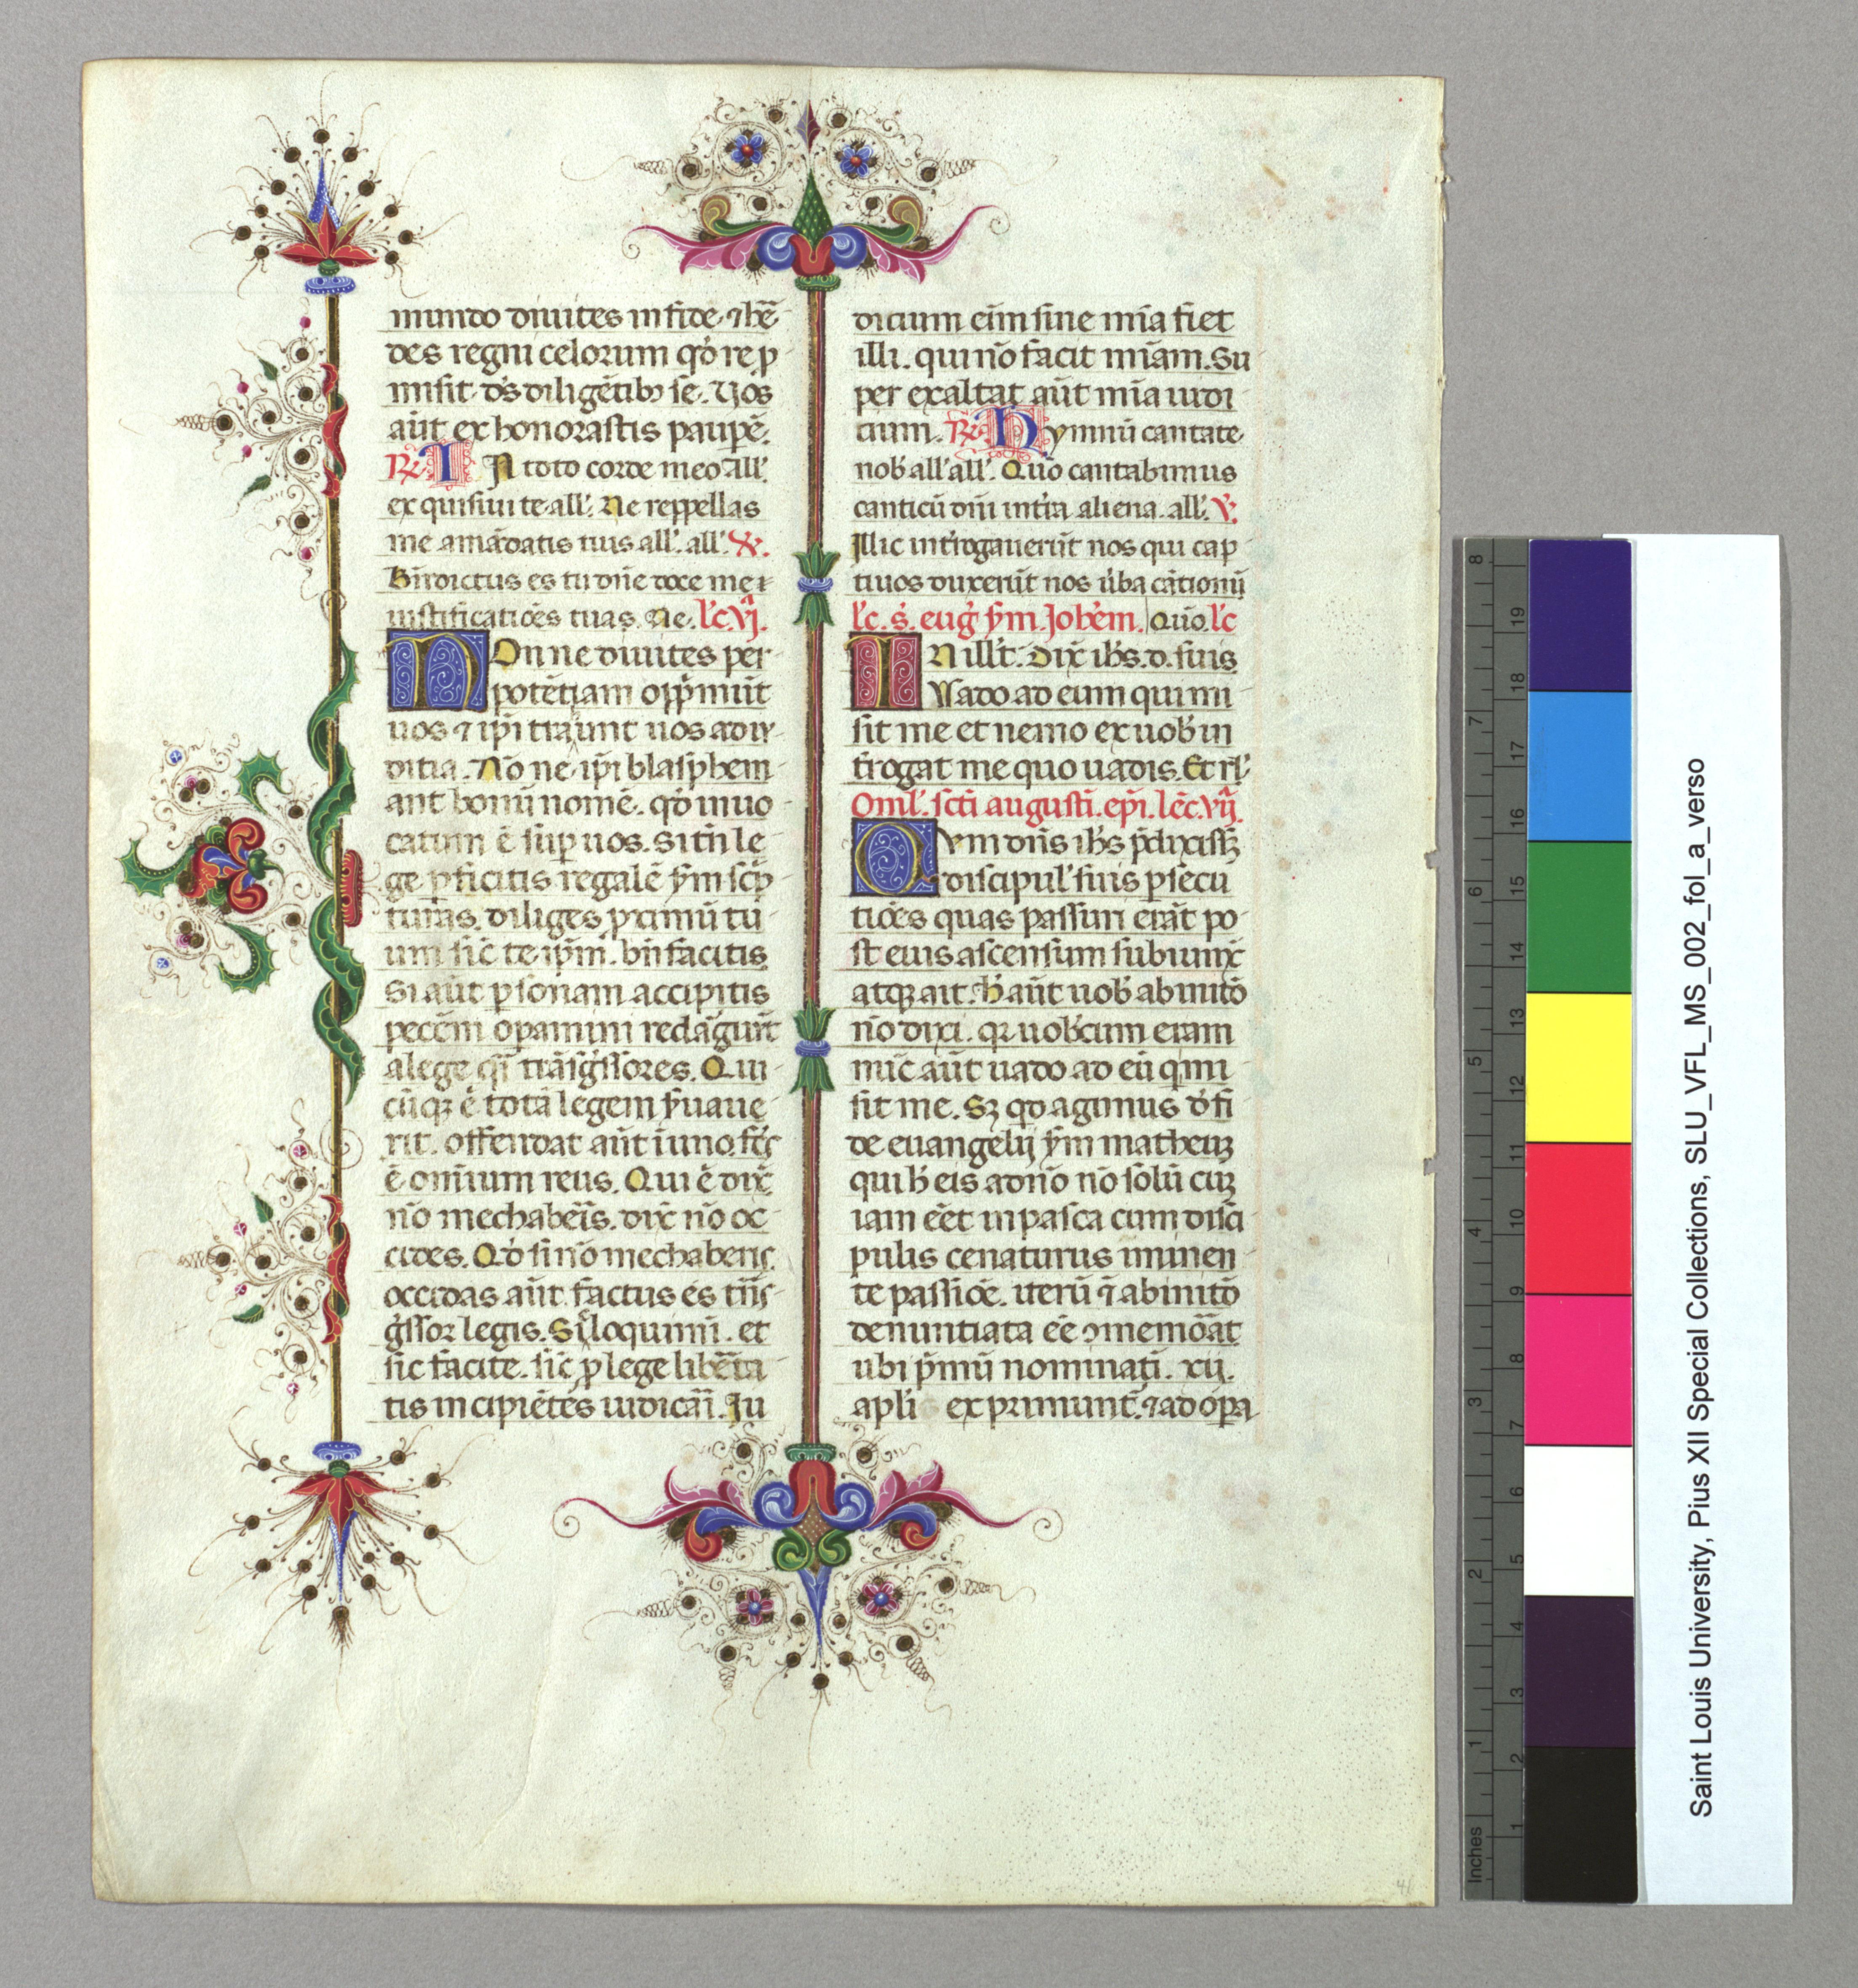 mundo diuites in fide ⁊ hē
des regni celorum qd̄ rep
misit d̄s diligētib; se. Uos
aūt exhonorastis paupē.
R. IN toto corde meo all'.
exquisiui te all'. Ne reppellas
me a mādatis tuis all'. all'. V.
Bn̄dictus es tu dn̄e doce me ı
iustificatiōes tuas. Ne. l'c. vj.
NOnne diuites per
potētiam opp̄munt
uos ⁊ ip̄i traūnt uos ad iu
ditia. Nōne ip̄i blasphem
ant bonū nomē. qd̄ inuo
catum ē sup uos. Si tn̄ le
ge pficitis regalē s̄m sc̄p
turas. diliges primū tu
um sic̄ te ip̄m. bn̄ facitis
Si aūt psonam accipitis
pecc̄m opamini redāguti
a lege q̄i trāsg̓ssores. Qui
cūq; ē totā legem s̓uaue
rit. offendat aūt ī uno. fc̄s
ē omīum reus. Qui ē dix̄
nō mechabeīs. dix̄ nō oc
cides. Qd̄ si nō mechaberis
occidas aūt. factus es tn̄s
g̓ssor legis. Sic̄ loquimī. et
sic facite. sic̄ p lege lib̄ta
tis incipiētes iudicāi. Ju
dicium eīm sine mīa fiet
illi. qui nō facit mīam. Su
per exaltat aūt mīa iudi
cium. R. Hymnū cantate
nob' all' all'. Quō cantabimus
canticū dn̄i in t̓ra aliena. all'. V.
Illic int̓rogauerūt nos qui cap
tiuos duxerūt nos ūba cātionū
l'c. s̓. eug̓ s̄m. Joh̄em. Quō. l'c
IN ill't. Dix̄ ih̄s. d. suis
Vado ad eum qui mi
sit me et nemo ex uob' in
t̓rogat me quo uadis. Et rl'.
Oml'. sc̄ti augusti. ep̄i. lēc. vij.
Cvm dn̄s ih̄s p̄dixiss;
discipul' suis psecu
tiōes quas passuri erāt po
st eius ascensum subiunx̄
atq; ait. h̓ aūt uob' ab initō
nō dixi. qr uob'cum eram
nūc aūt uado ad eū q̄ mi
sit me. S; qd̄ agimus d̓ fi
de euangelij s̄m matheu;
qui h̓ eis ad nō nō solū cu;
iam eēt in pasca cum disci
pulis cenaturus iminen
te passiōe. iterū ⁊ ab initō
denuntiata eē ↄmemōat
ubi p̄mū nominatī. xij.
apl'i exprimunt̓. ⁊ ad opa
Saint Louis University, Pius XII Special Collections, SLU_VFL_MS_002_fol_a_verso